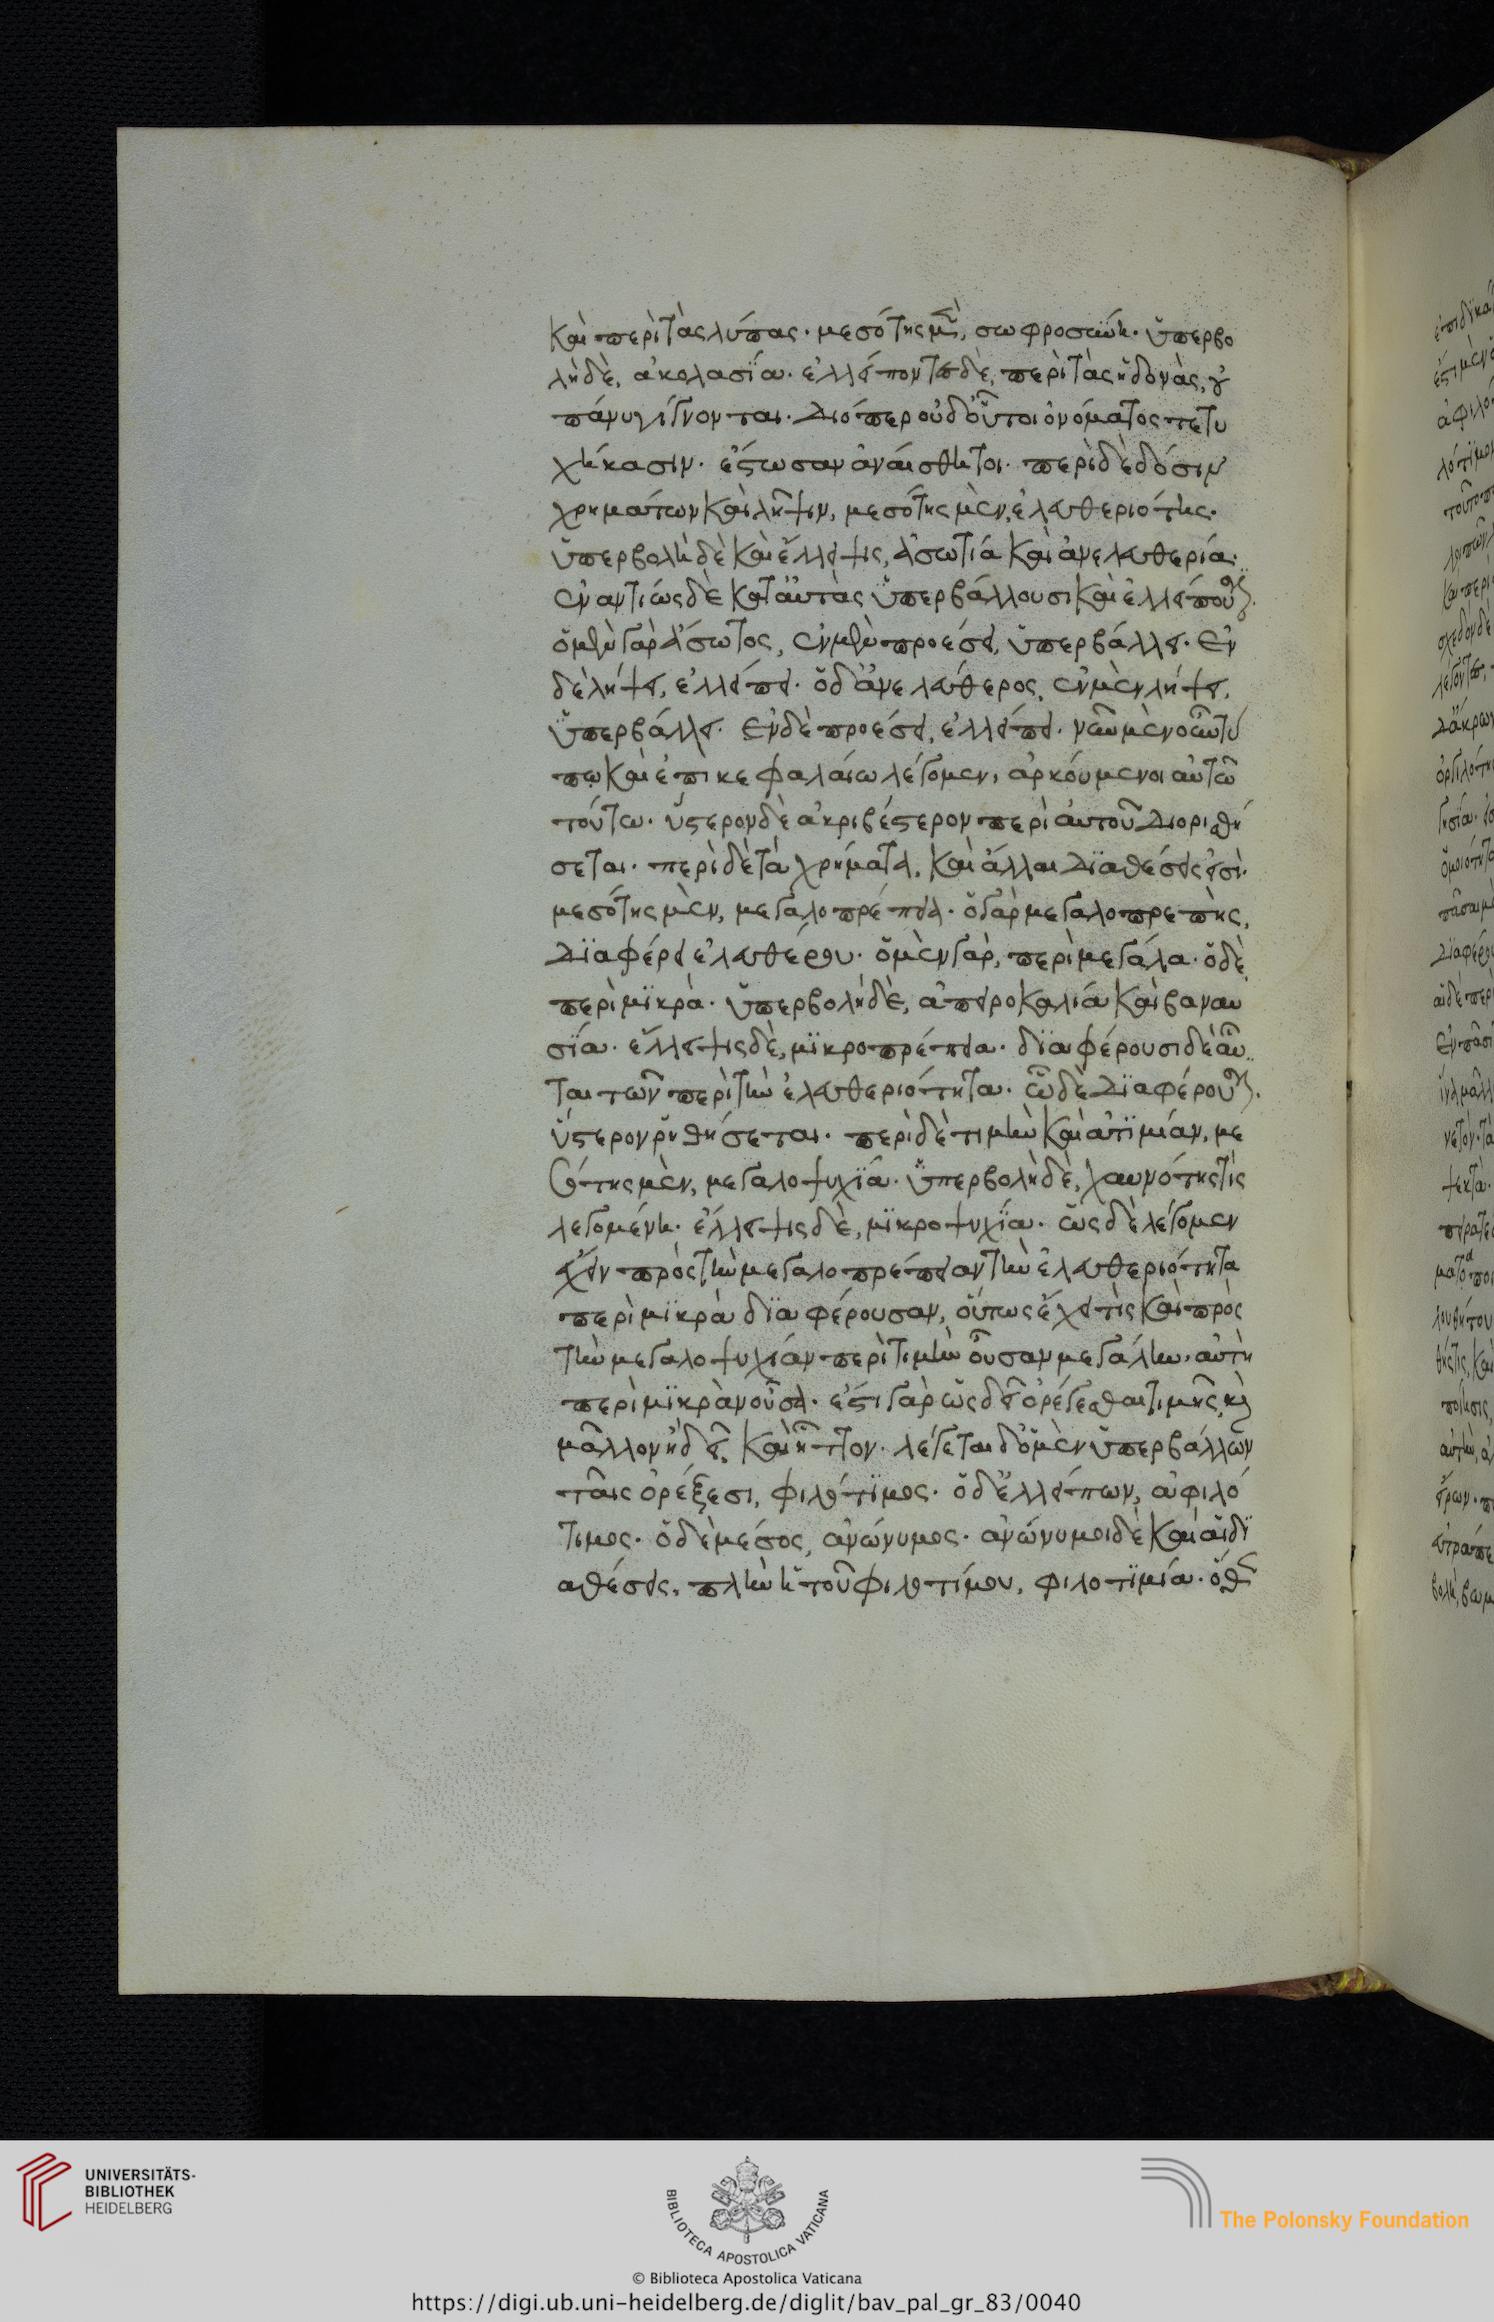 καὶ περὶ τὰς λύπας· μεσότης μὲν, σωφροσύνη· ὑπερβο
λὴ δὲ, ἀκολασία· ἐλλείποντες δὲ, περὶ τὰς ἡδονὰς, οὐ
πάνυ γίγνονται. Διόπερ οὐδ' οὗτοι ὀνόματος τετυ
χήκασιν· ἔστωσαν ἀναίσθητοι· περὶ δὲ δόσιν
χρημάτων καὶ λῆψιν, μεσότης μὲν, ἐλευθεριότης·
ὑπερβολὴ δὲ καὶ ἔλλειψις, ἀσωτία καὶ ἀνελευθερία·
ἐναντίως δὲ κατ' αὐτὰς ὑπερβάλλουσι καὶ ἐλλείπουσι.
ὁ μὲν γὰρ ἄσωτος, ἐν μὲν προέσει, ὑπερβάλλει. Ἐν
δὲ λήψει, ἐλλείπει· ὁ δ' ἀνελεύθερος, ἐν μὲν λήψει,
ὑπερβάλλει· Ἐν δὲ προέσει, ἐλλείπει· νῦν μὲν οὖν τύ
πῳ καὶ ἐπὶ κεφαλαίω λέγομεν, ἀρκούμενοι αὐτῶ
τούτω· ὕστερον δὲ ἀκριβέστερον περὶ αὐτοῦ διορισθή
σεται· περὶ δὲ τὰ χρήματα, καὶ ἄλλαι διαθέσεις εἰσὶ·
μεσότης μὲν, μεγαλοπρέπεια· ὁ γὰρ μεγαλοπρεπὴς,
διαφέρει ἐλευθέρου· ὁ μὲν γὰρ, περὶ μεγάλα· ὁ δὲ
περὶ μικρὰ· ὑπερβολὴ δὲ, ἀπειροκαλία καὶ βαναυ
σία· ἔλλειψις δὲ, μικροπρέπεια· διαφέρουσι δὲ αὗ
ται τῶν περὶ τὴν ἐλευθεριότητα· ὧ δὲ διαφέρουσι.
ὕστερον ῥηθήσεται· περὶ δὲ τιμὴν καὶ ἀτιμίαν, με
σότης μὲν, μεγαλοψυχία· ὑπερβολὴ δὲ, χαυνότης τὶς
λεγομένη· ἔλλειψις δὲ, μικροψυχία· ὡς δὲ λέγομεν
ἔχειν πρὸς τὴν μεγαλοπρέπειαν τὴν ἐλευθεριότητα
περὶ μικρὰ διαφέρουσαν, οὕτως ἔχει τὶς καὶ πρὸς
τὴν μεγαλοψυχίαν περὶ τιμὴν οὖσαν μεγάλην· αὐτὴ
περὶ μικρὰν οὖσα· ἔστι γὰρ ὡς δεῖ ὀρέγεσθαι τιμῆς, καὶ
μᾶλλον ἢ δεῖ, καὶ ἧττον· λέγεται δ' ὁ μὲν ὑπερβάλλων
ταῖς ὀρέξεσι, φιλότιμος· ὁ δ' ἐλλείπων, ἀφιλό
τιμος· ὁ δὲ μέσος, ἀνώνυμος· ἀνώνυμοι δὲ καὶ αἱ δι
αθέσεις, πλὴν ἡ τοῦ φιλοτίμου, φιλοτιμία· ὅθεν
UNIVERSITÄTS-
BIBLIOTHEK
HEIDELBERG
BIBLIOTECA APOSTOLICA VATICANA
The Polonsky Foundation
© Biblioteca Apostolica Vaticana
https://digi.ub.uni-heidelberg.de/diglit/bav_pal_gr_83/0040